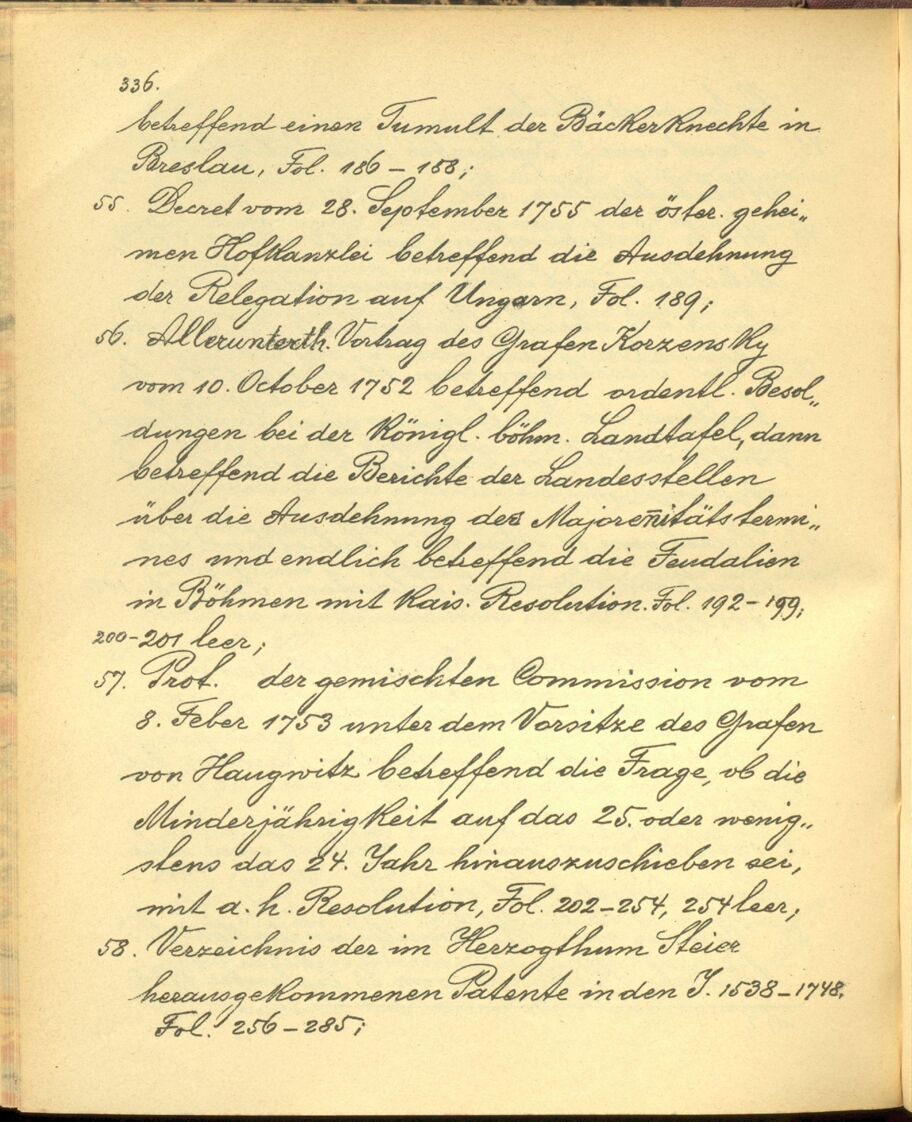 336.
betreffend einen Tumult der Bäckerknechte in
Breslau, Fol. 186 – 188;
55. Decret vom 28. September 1755 der öster. gehei„
men Hofkanzlei betreffend die Ausdehnung
der Relegation auf Ungarn, Fol. 189;
56. Allerunterth. Vortrag des Grafen Korzensky
vom 10. October 1752 betreffend ordentl. Besol„
dungen bei der Königl. böhm. Landtafel, dann
betreffend die Berichte der Landesstellen
über die Ausdehnung des Majoren̄itätstermi„
nes und endlich betreffend die Feudalien
in Böhmen mit Kais. Resolution. Fol. 192–199;
200–201 leer;
57. Prot. der gemischten Commission vom
8. Feber 1753 unter dem Vorsitze des Grafen
von Haugwitz betreffend die Frage, ob die
Minderjährigkeit auf das 25. oder wenig„
stens das 24. Jahr hinauszuschieben sei,
mit a. h. Resolution, Fol. 202–254, 254 leer;
58. Verzeichnis der im Herzogthum Steier
herausgekommenen Patente in den J. 1538–1748,
Fol. 256–285;